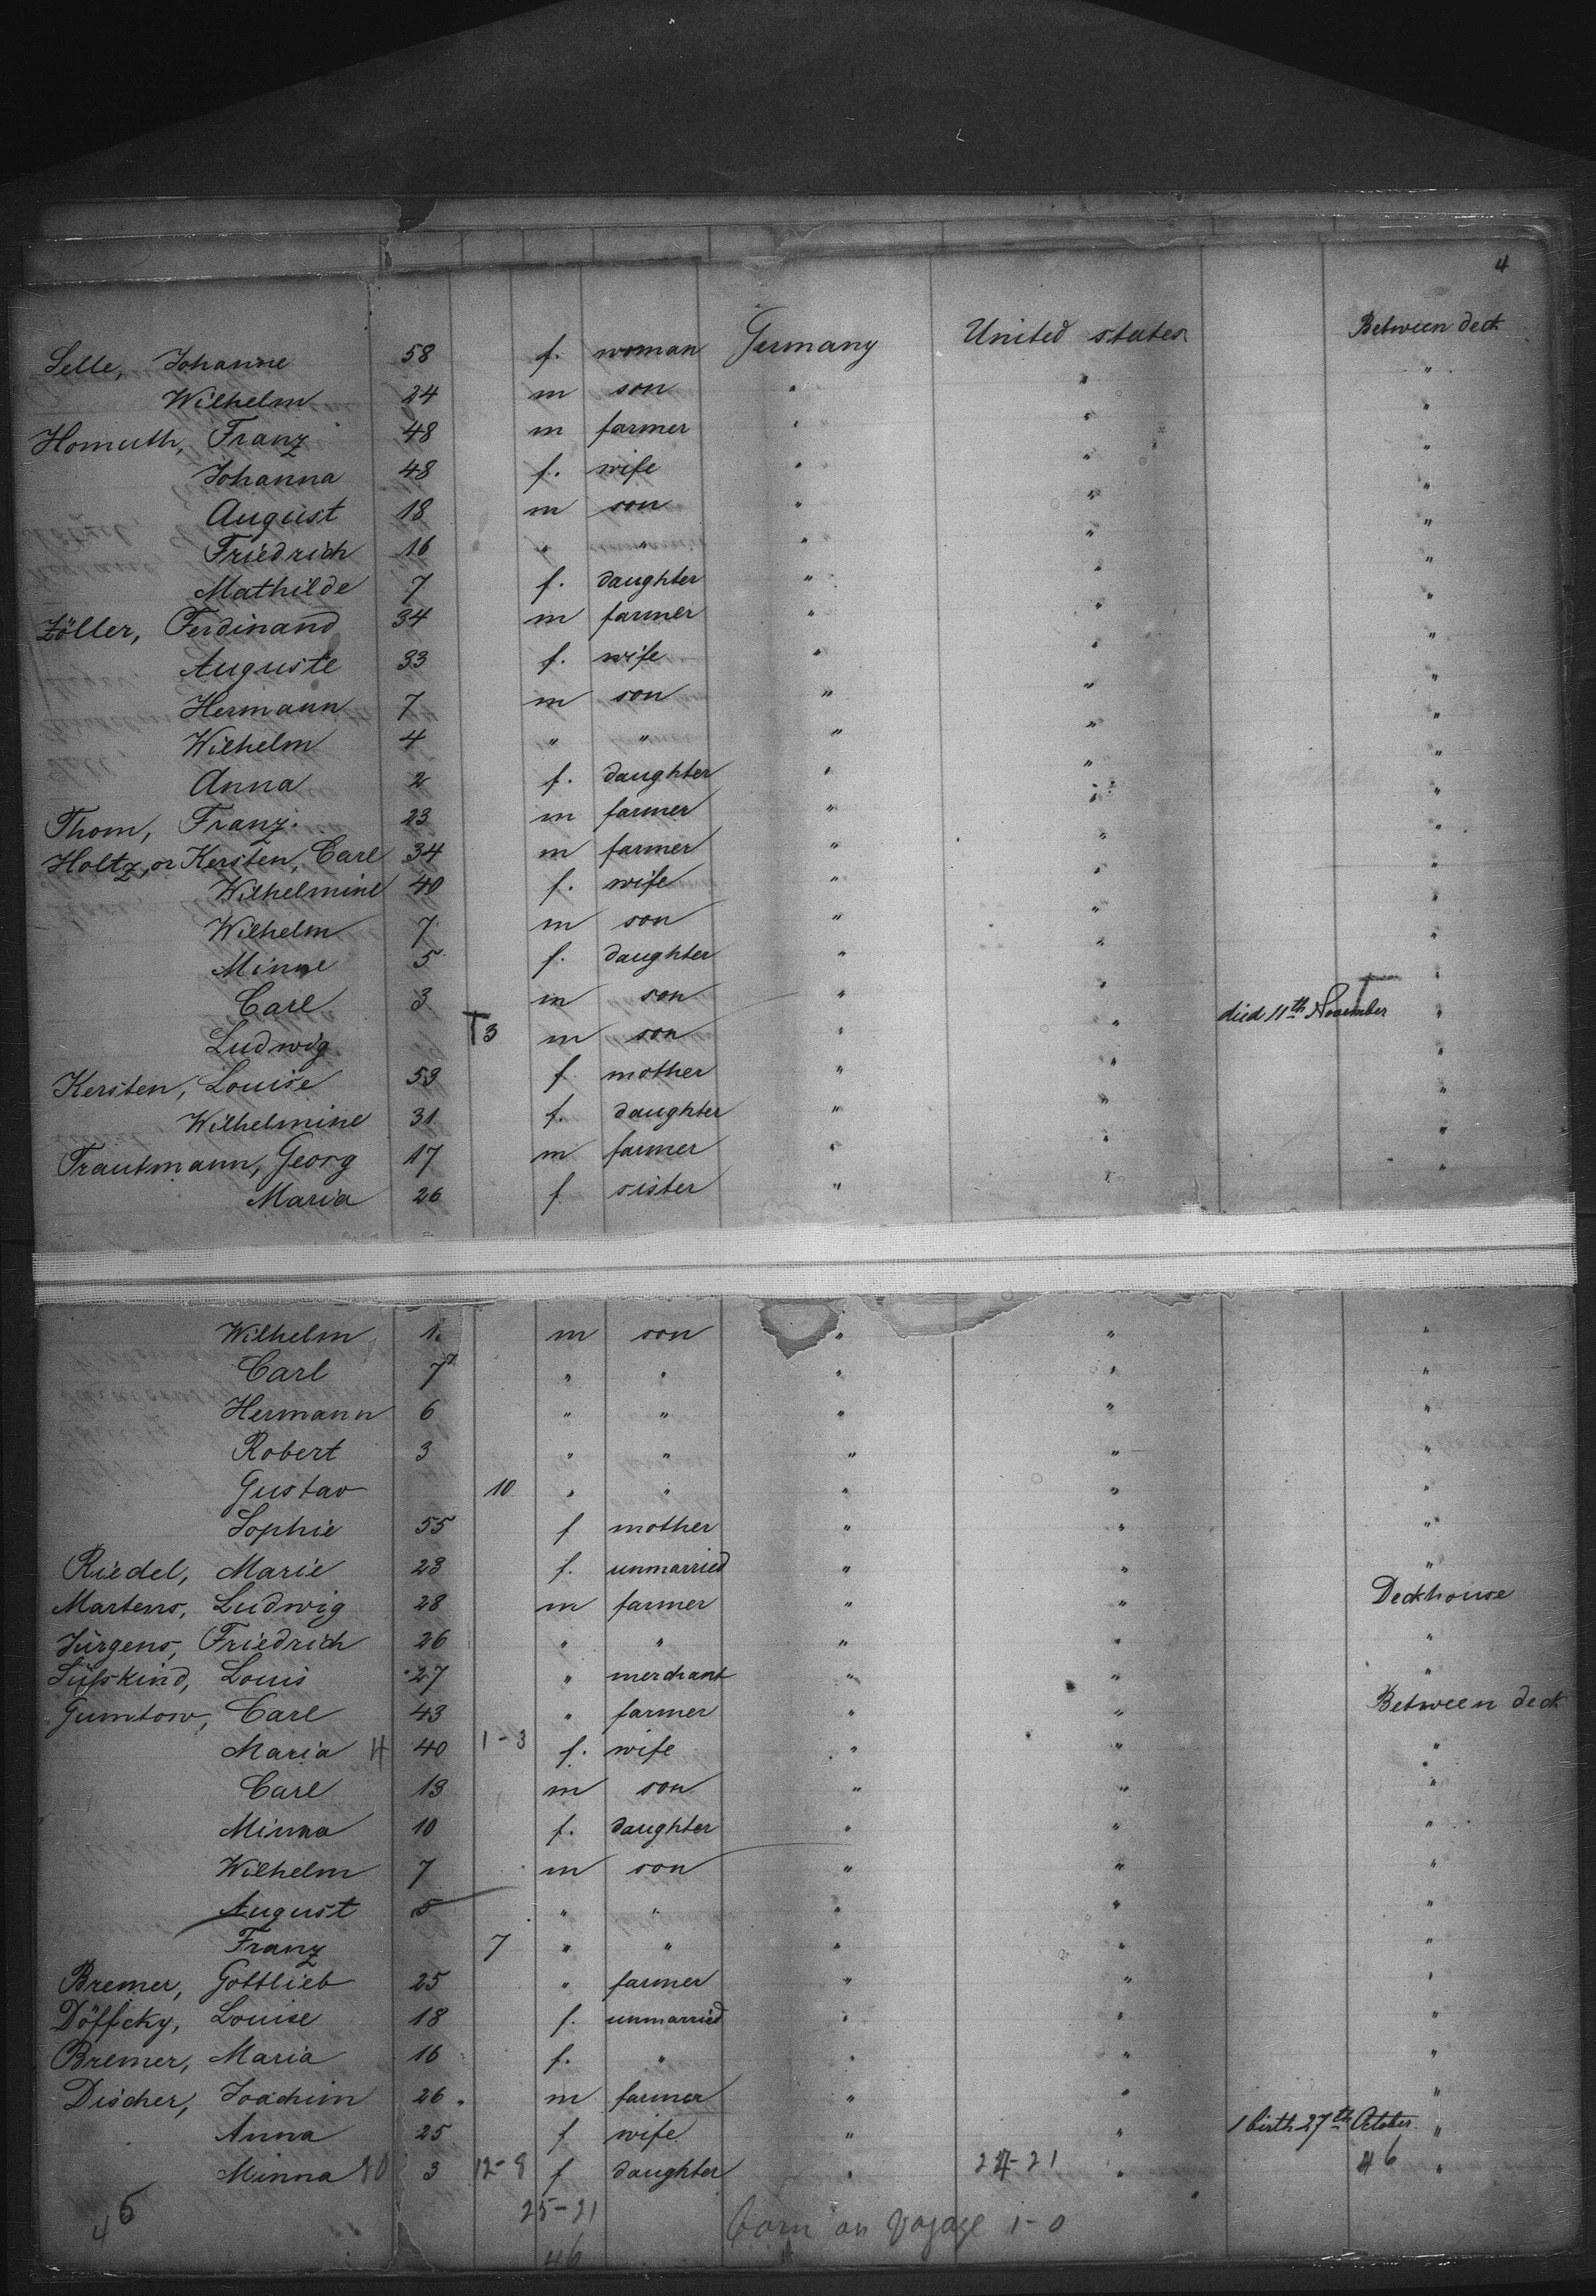 4
Selle, Johanne 58 f. woman Germany United states Between deck
Wilhelm 24 m son " " "
Homuth, Franz 48 m farmer " " "
Johanna 48 f. wife " " "
August 18 m son " " "
Friedrich 16 " " " " "
Mathilde 7 f. daughter " " "
Zöller, Ferdinand 34 m farmer " " "
Auguste 33 f. wife " " "
Hermann 7 m son " " "
Wilhelm 4 " " " " "
Anna 2 f. daughter " " "
Thom, Franz. 23 m farmer " " "
Holtz, or Kersten, Carl 34 m farmer " " "
Wilhelmine 40 f. wife " " "
Wilhelm 7 m son " " "
Minne 5 f. daughter " " "
Carl 3 m son " " "
Ludwig T3 m son " " died 11th November "
Kersten, Louise 53 f mother " " "
Wilhelmine 31 f. daughter " " "
Trautmann, Georg 17 m farmer " " "
Maria 26 f sister " " "
Wilhelm 1. m son " " "
Carl 7 " " " " "
Hermann 6 " " " " "
Robert 3 " " " " "
Gustav 10 " " " " "
Sophie 55 f mother " " "
Riedel, Marie 28 f. unmarried " " "
Martens, Ludwig 28 m farmer " " Deckhouse
Jürgens, Friedrich 26 " " " " "
Süfskind, Louis 27 " merchant " " "
Gumtow, Carl 43 " farmer " " Between deck
Maria 4 40 1-3 f. wife " " "
Carl 13 m son " " "
Minna 10 f. daughter " " "
Wilhelm 7 m son " " "
August 5 " " " " "
Franz 7 " " " " "
Bremer, Gottlieb 25 " farmer " " "
Döffcky, Louise 18 f. unmarried " " "
Bremer, Maria 16 f. " " " "
Discher, Joachim 26. m farmer " " "
Anna 25 f wife " " 1 birth 27th October "
Minna 3 12-8 f daughter " 24-21 " 46 "
46 25-21 born on Voyage 1-0
46